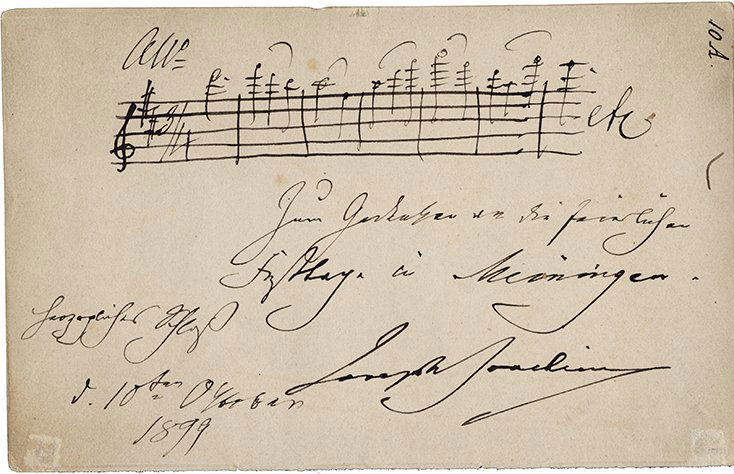 10 A.
Allo
3/4
etc
Zum Gedenken an die feierlichen
Festtage in Meiningen.
Herzogliches Schloß
d. 10ten Oktober
1899
Joseph Joachim